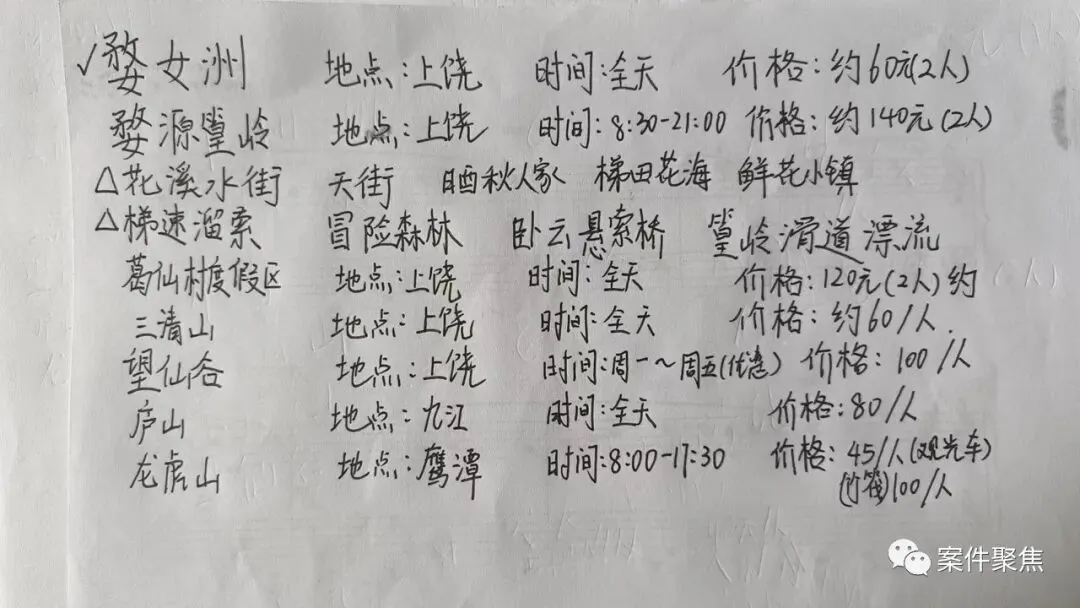 ✓婺女洲 地点:上饶 时间:全天 价格:约60元(2人)
婺源篁岭 地点:上饶 时间:8:30-21:00 价格:约140元(2人)
△花溪水街 天街 晒秋人家 梯田花海 鲜花小镇
△梯速溜索 冒险森林 卧云悬索桥 篁岭滑道漂流
葛仙村度假区 地点:上饶 时间:全天 价格:120元(2人)约
三清山 地点:上饶 时间:全天 价格:约60/人.
望仙谷 地点:上饶 时间:周一~周五(优惠) 价格:100/人
庐山 地点:九江 时间:全天 价格:80/人
龙虎山 地点:鹰潭 时间:8:00-17:30 价格:45/人(观光车)
(竹筏)100/人
案件聚焦